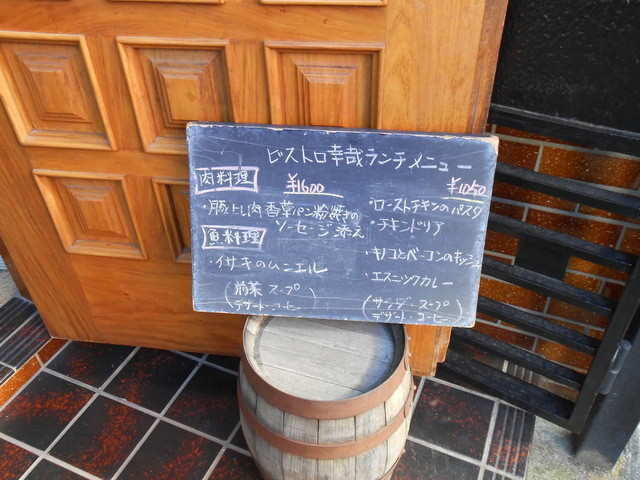 ビストロ幸哉ランチメニュー
肉料理
¥1600
・豚ヒレ肉香草パン粉焼きの
ソーセージ添え
魚料理
・イサキのムニエル
(前菜 スープ
デザート・コーヒー)
¥1050
・ローストチキンのパスタ
・チキンドリア
・キノコとベーコンのキッシュ
・エスニックカレー
(サラダ・スープ
デザート・コーヒー)